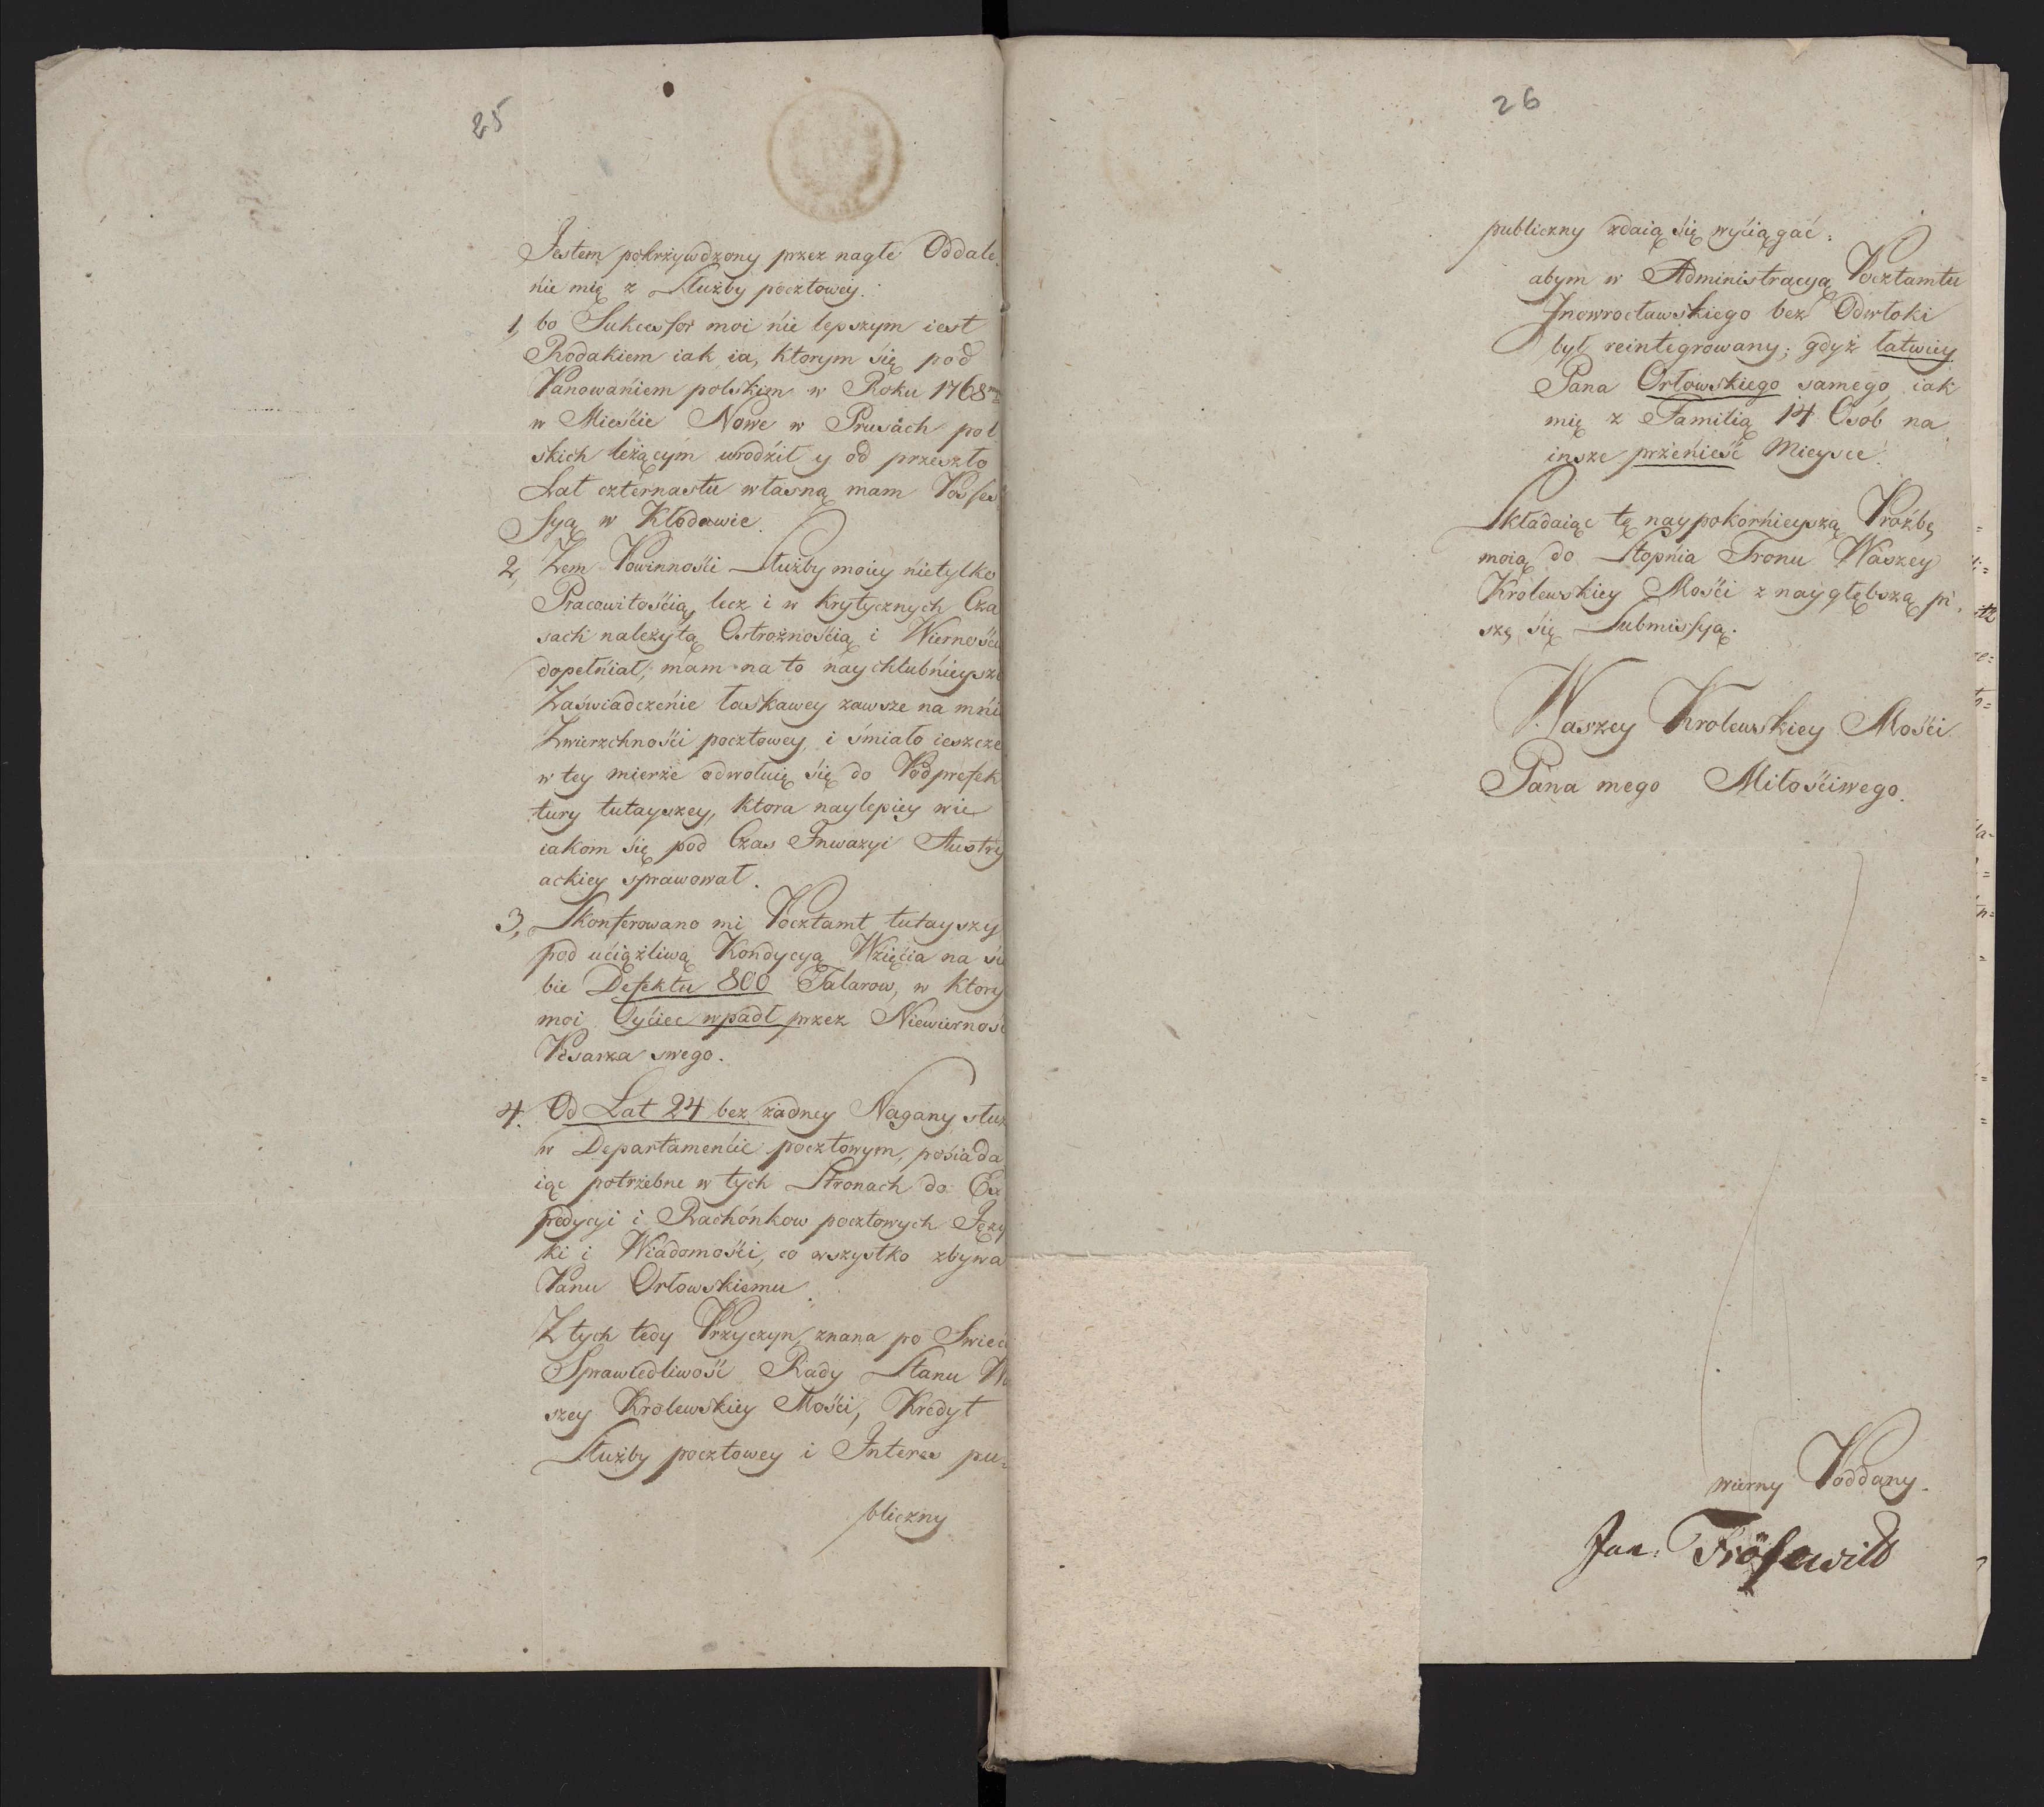 25
Jestem pokrzywdzony przez nagłe Oddale
nie mię z Służby pocztowey.
1, bo Sukcessor moi nie lepszym iest
Rodakiem iak ia, ktorym się pod
Panowaniem polskim w Roku 1768
w Mieście Nowe w Prusach pol
skich leżącym urodził y od przeszło
Lat czternastu własną mam Posses
syą w Kłodawie.
2, Żem Powinności Służby moiey nietylko
Pracowitością, lecz i w krytycznych Cza
sach należytą Ostrożnością i Wiernośc
dopełniał, mam na to naychlubnieysze
Zaświadczenie łaskawey zawsze na mnie
Zwierzchności pocztowey, i śmiało ieszcze
w tey mierze odwołuię się do Podprefek
tury tutayszey, ktora naylepiey wie
iakom się pod Czas Inwazyi Austry
ackiey sprawował.
3, Skonferowano mi Pocztamt tutayszy
pod uciążliwą Kondycyą Wzięcia na sie
bie Defektu 800 Talarow, w ktory
moi Oyciec wpadł przez Niewierność
Pisarza swego.
4. Od Lat 24 bez żadney Nagany służ
w Departamencie pocztowym, posiada
iąc potrzebne w tych Stronach do Ex
pedycyi i Rachónkow pocztowych Języ
ki i Wiadomości, co wszystko zbywa
Panu Orłowskiemu.
Z tych tedy Przyczyn, znana po Swiec
Sprawiedliwość Rady Stanu Wa
szey Krolewskiey Mości, Kredyt
Służby pocztowey i Interes pu-
bliczny
26
publiczny zdaią się wyciągać:
abym w Administracyą Pocztamtu
Inowrocławskiego bez Odwłoki
był reintegrowany; gdyż łatwiey
Pana Orłowskiego samego iak
mię z Familią 14 Osób na
insze przenieść Mieysce.
Składaiąc tę naypokornieyszą Prożbę
moią do Stopnia Tronu Waszey
Krolewskiey Mości z naygłębszą pi,
szę się Submissyą.
Waszey Krolewskiey Mości
Pana mego Miłościwego.
wierny Poddany.
Jan. Frösewild